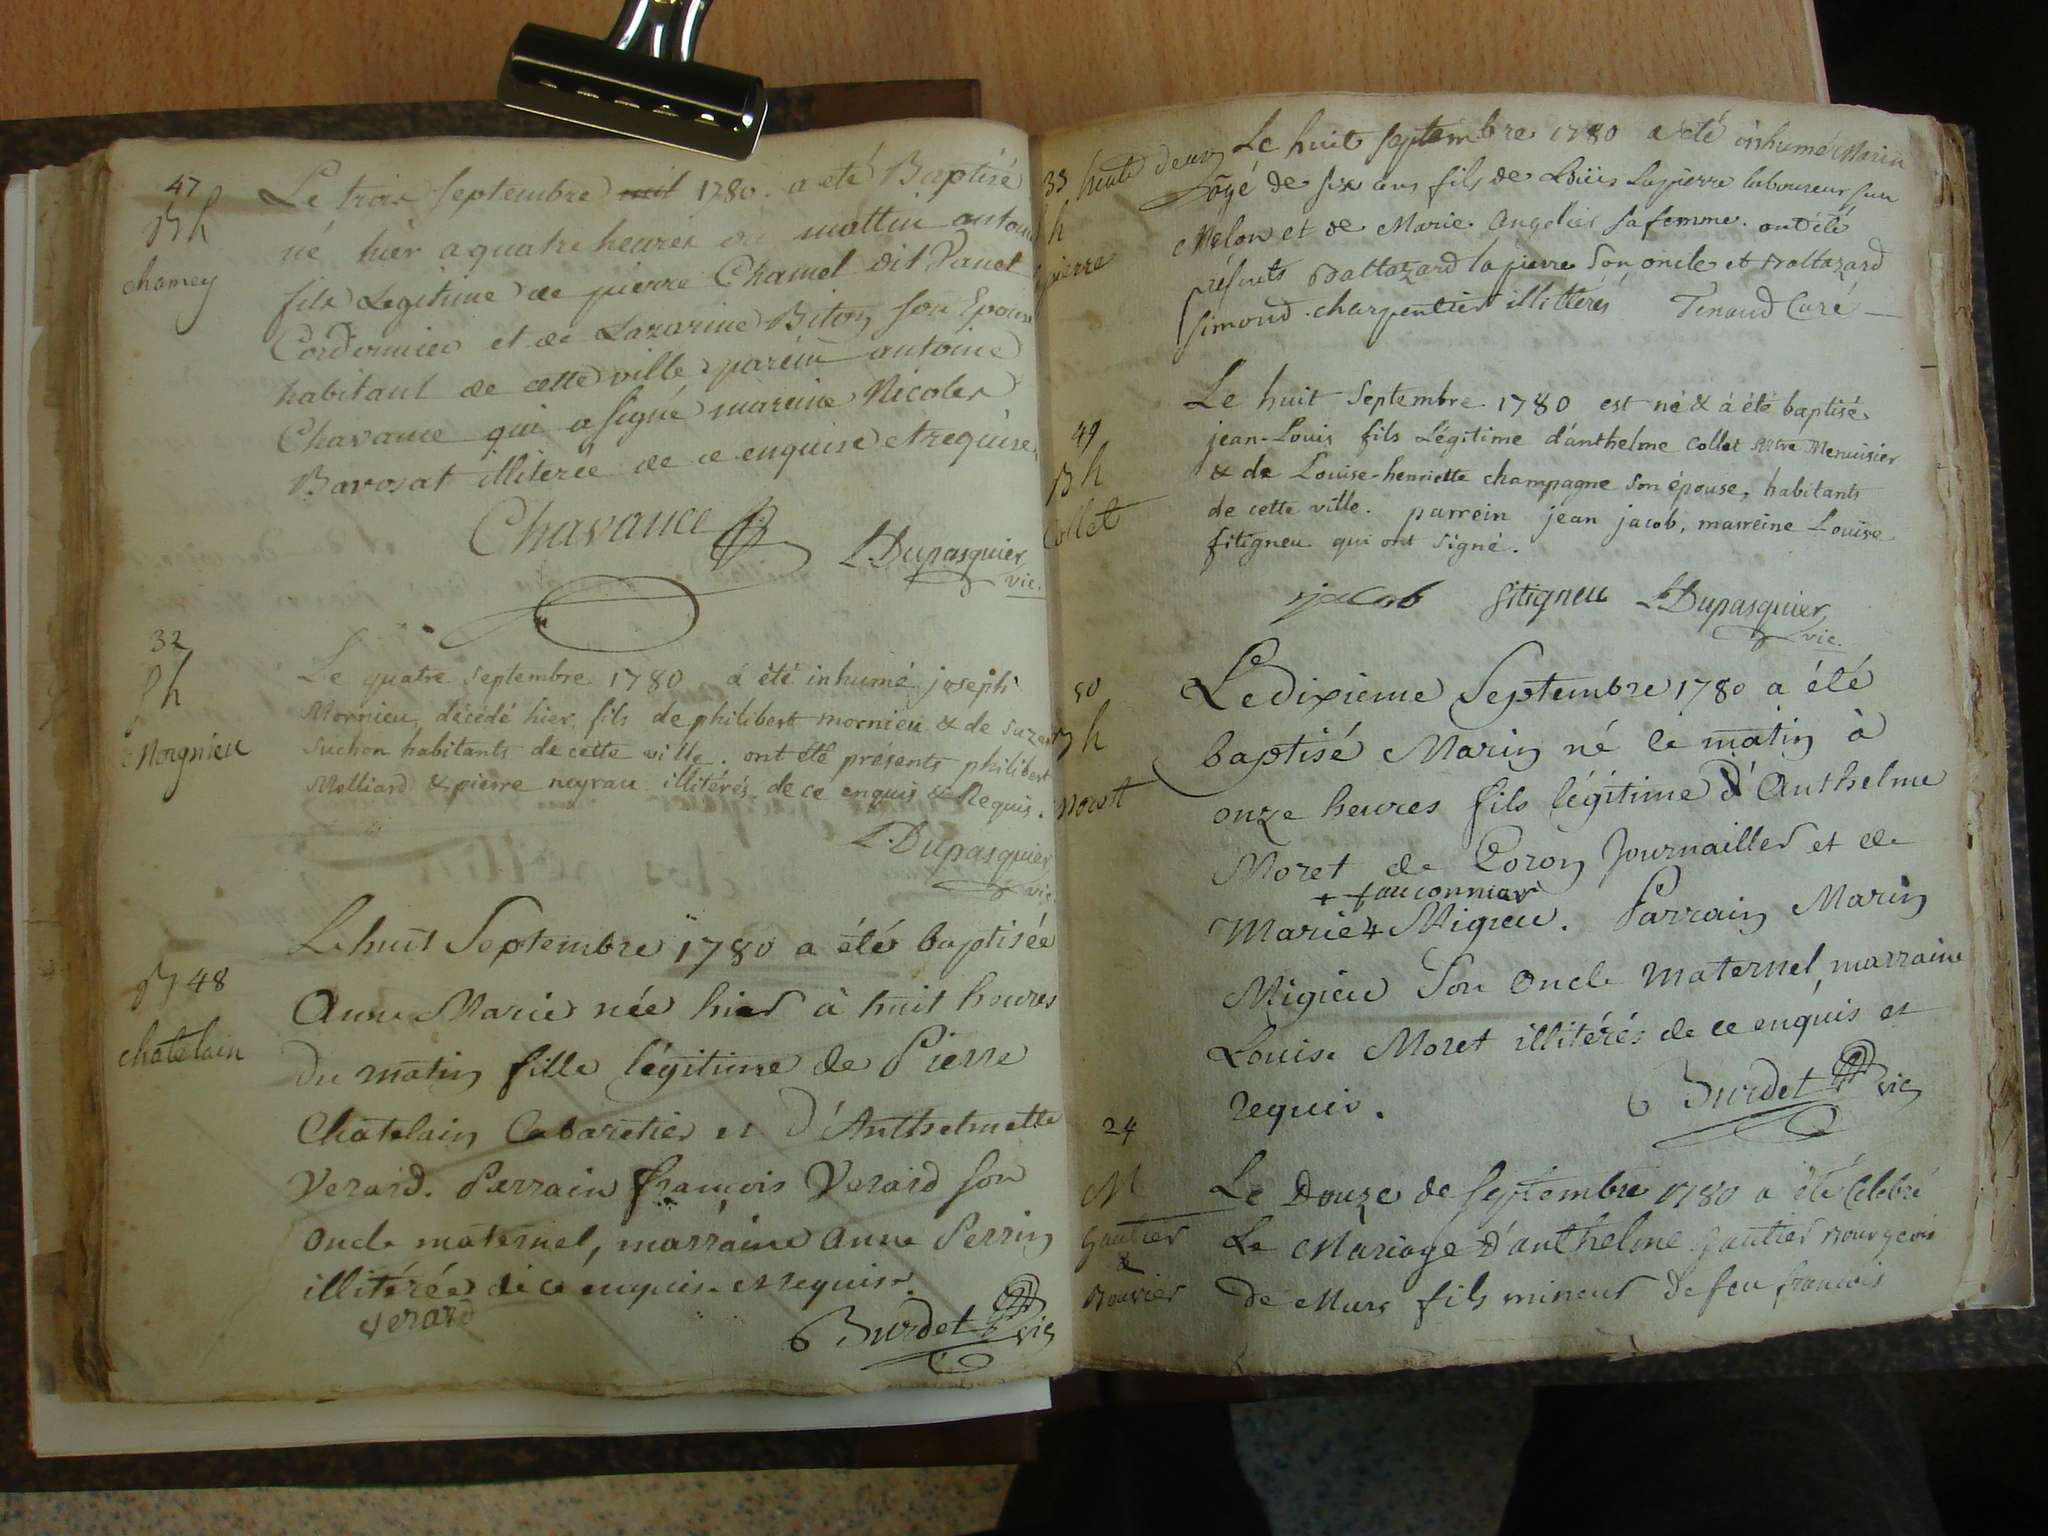 47
Bh
chamey
Le trois septembre mil 1780. a eté Baptisé
né hier a quatre heures du mattin antoine
fils Legitime de pierre Chamel dit
Cordonnier et de Lazarine Biton son Epouse
habitant de cette ville parein antoine
Chavance qui a signé mareine Nicoler
Bavosat illiterée de ce enquise et requise
Chavance
Dupasquier
vic.
32
Sh
Mognieu
Le quatre septembre 1780 á été inhumé joseph
Mornieu, décédé hier, fils de philibert mornieu & de
Suchon habitants de cette ville. ont été présents philibert
Molliard & pierre neyrau illitérés de ce enquis & Requis.
Dupasquier
vic.
Le huit Septembre 1780 a été baptisée
B 48
chatelain
Anne Marie née hier à huit heures
du matin fille légitime de Pierre
Chatelain Cabaretier et d'Anthelmette
Verard. Parrain françois Verard son
oncle maternel, marraine Anne Perrin
illitérée de ce enquise et requise.
verard
Burdet vic
33
Sh
pierre
Le huit septembre 1780 a été inhumé Marin
âgé de six ans fils de Loüis Lapierre laboureur sur
Melon et de Marie Angelier sa femme. ont été
présents Baltazard lapierre son oncle et Baltazard
simond charpentier illittérés Tenaud Curé
49
Bh
Collet
Le huit Septembre 1780 est né & á été baptisé
jean-Louis fils Légitime d'anthelme Collet Mtre Menuisier
& de Louise-henriette champagne son épouse, habitants
de cette ville. parrein jean jacob, marreine Louise
fitigneu qui ont signé.
jacob fitigneu Dupasquier
vic.
50
Bh
Morett
Le dixieme Septembre 1780 a été
baptisé Marin né le matin à
onze heures fils légitime d'Anthelme
Moret de Coron Journaillier et de
+ fauconnier
Marie + Migieu. Parrain Marin
Migieu Son Oncle maternel, marraine
Louise Moret illitérés de ce enquis et
requis.
Burdet vic
24
M
Gautier
&
Bouvier
Le Douze de septembre 1780 a été Celebré
Le Mariage d'anthelme Gautier Bourgeois
de Murs fils mineur de feu francois